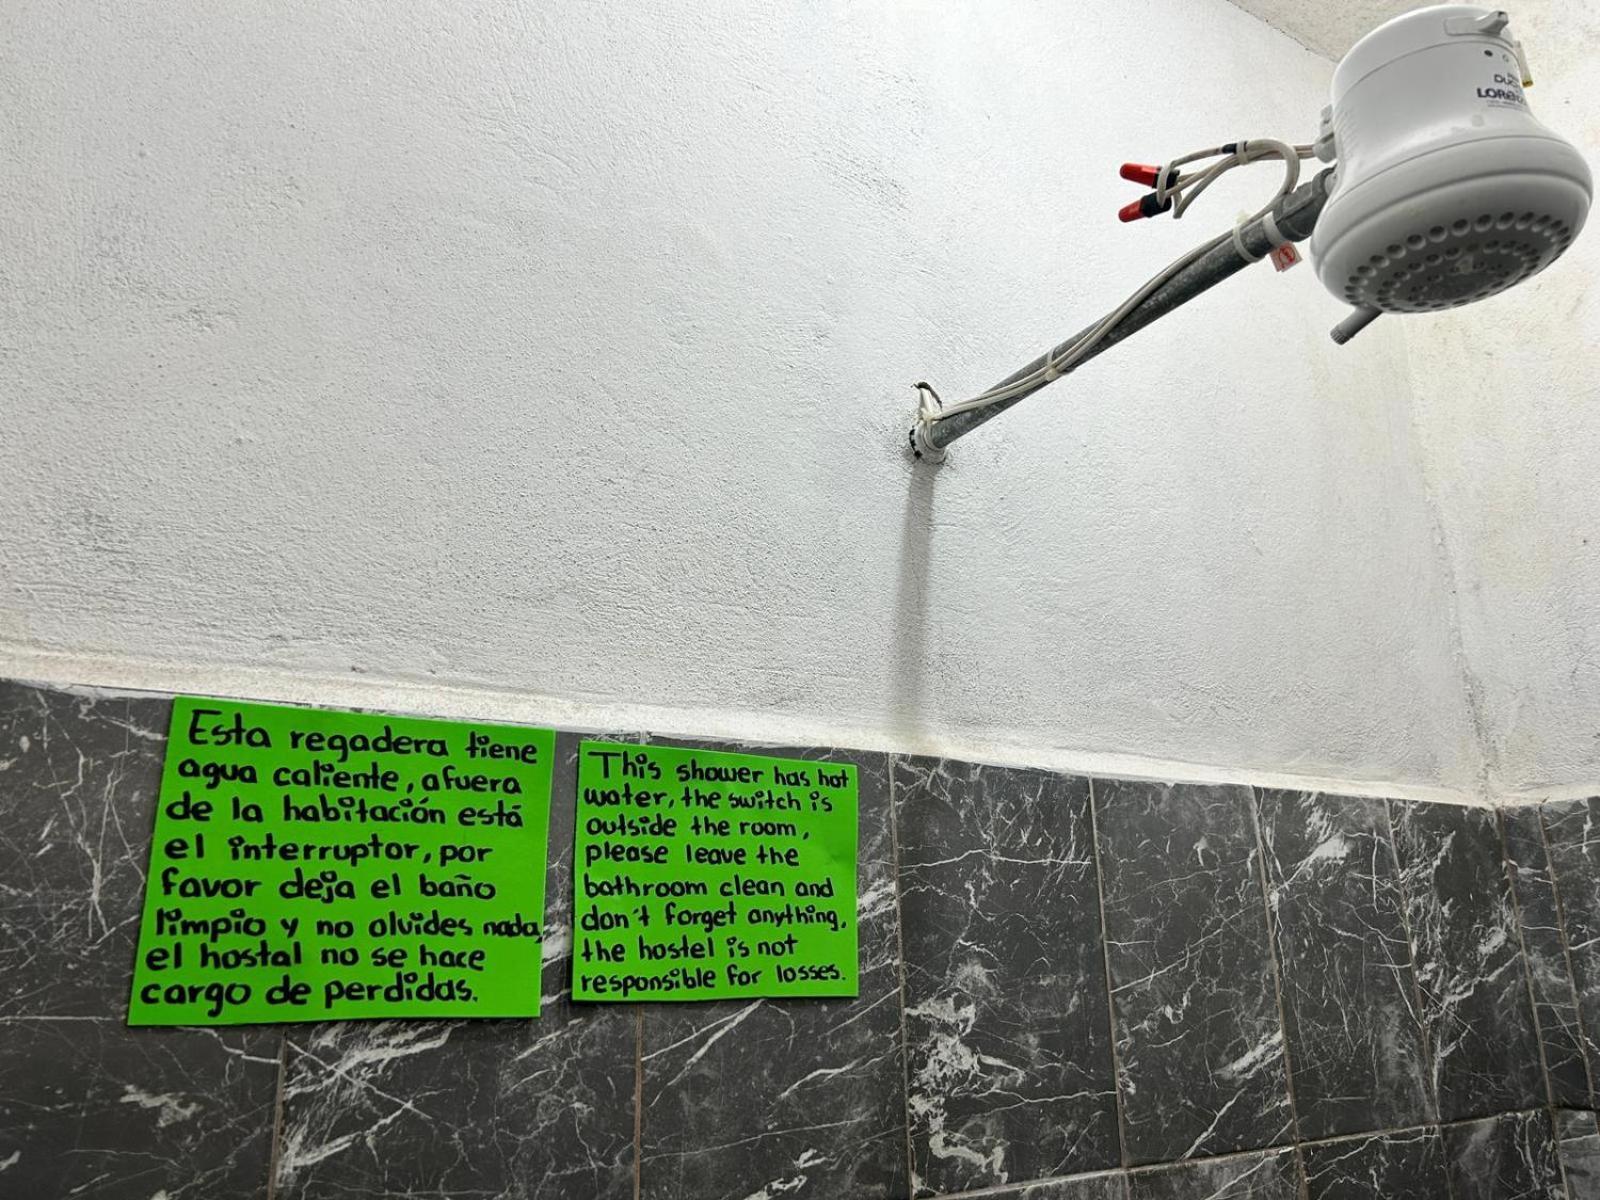 Esta regadera tiene
agua caliente, afuera
de la habitación está
el interruptor, por
favor deja el baño
limpio y no olvides nada,
el hostal no se hace
cargo de perdidas.
This shower has hot
water, the switch is
outside the room,
please leave the
bathroom clean and
don't forget anything,
the hostel is not
responsible for losses.